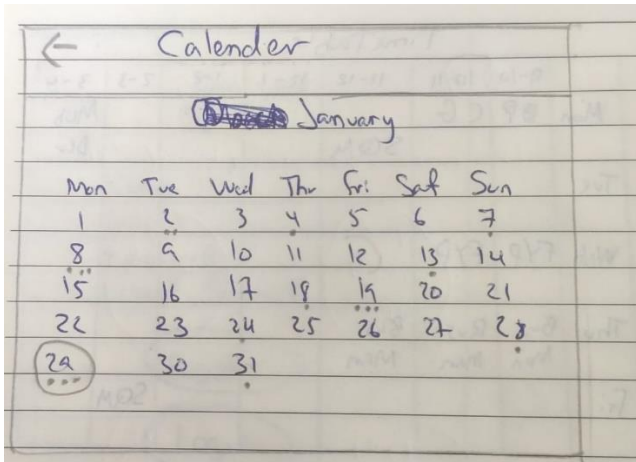 Calender
January
Mon Tue Wed Thr Fri Sat Sun
1 2 3 4 5 6 7
8 9 10 11 12 13 14
15 16 17 18 19 20 21
22 23 24 25 26 27 28
29 30 31